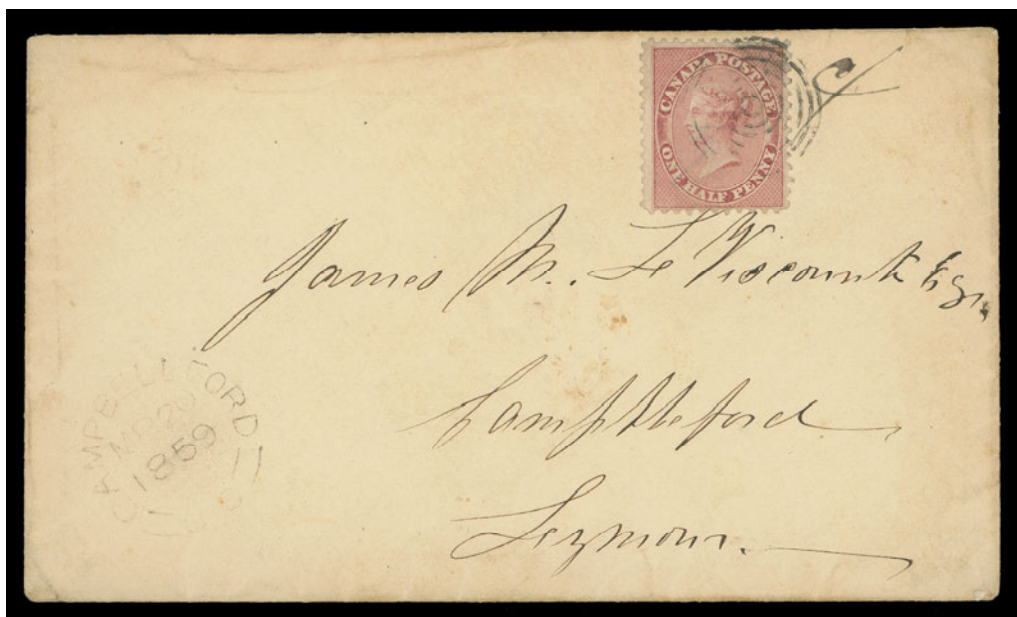 CANADA POSTAGE
ONE HALF PENNY
James M. Le Viscount Esqr.
Campbleford
Seymour.
CAMPBELLFORD
1859